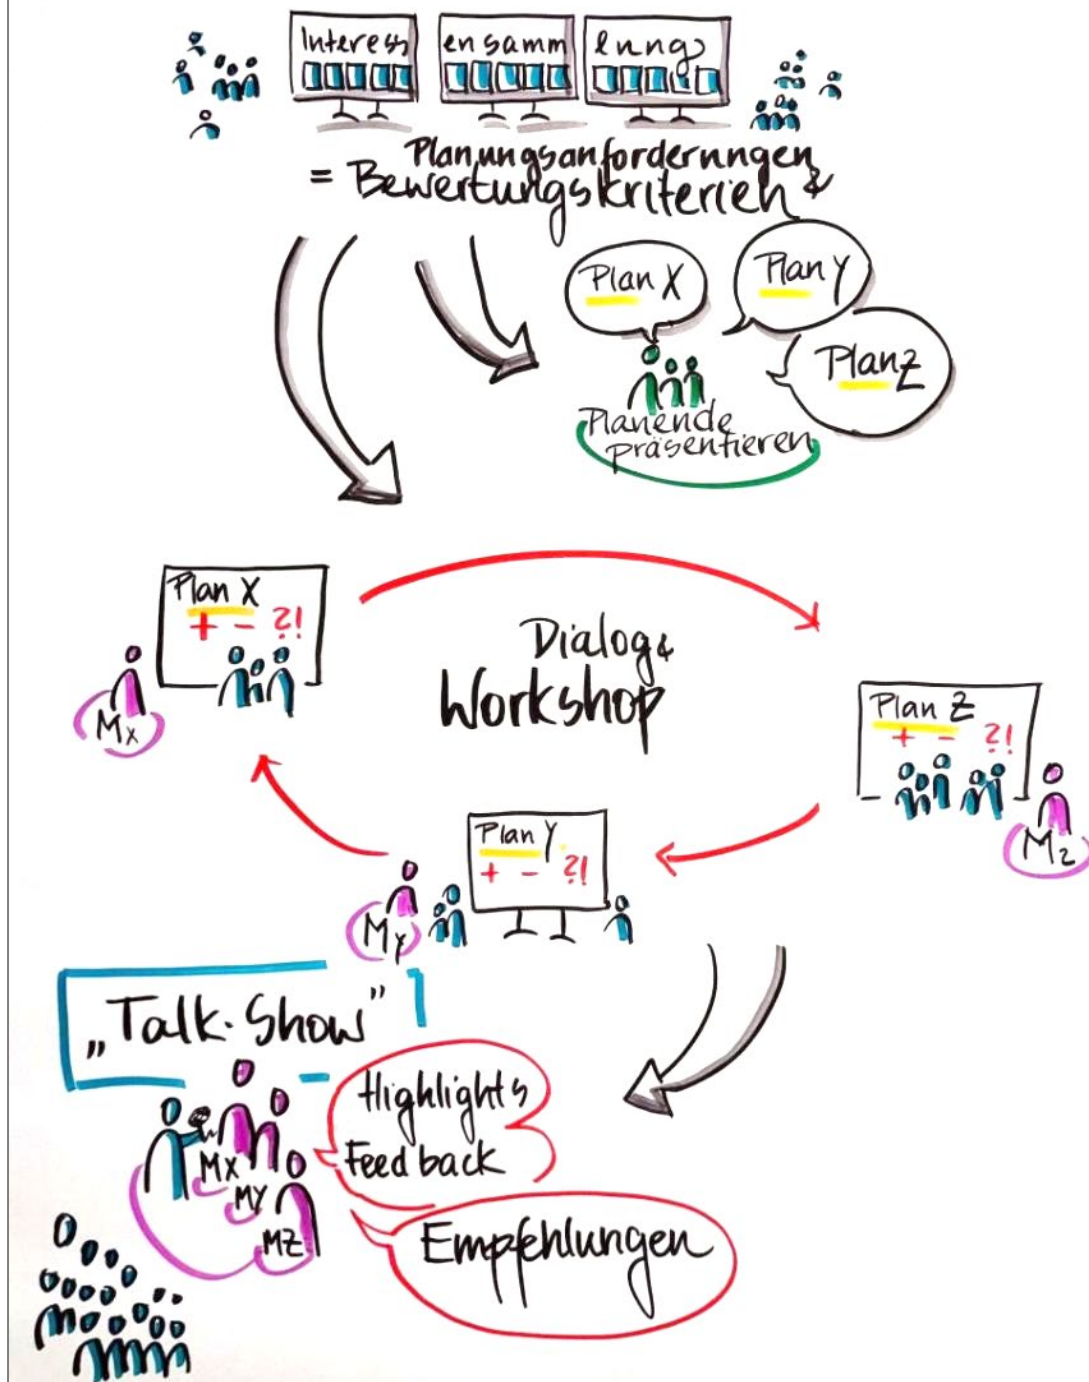 Interess en samm lungs
Planungsanforderungen
= Bewertungskriterien &
Plan X
Plan Y
Plan Z
Planende
präsentieren
Plan X
+ - ?!
Mx
Dialog &
Workshop
Plan Z
+ - ?!
Mz
Plan Y
+ - ?!
My
„Talk-Show”
Highlights
Feedback
MX
MY
MZ
Empfehlungen